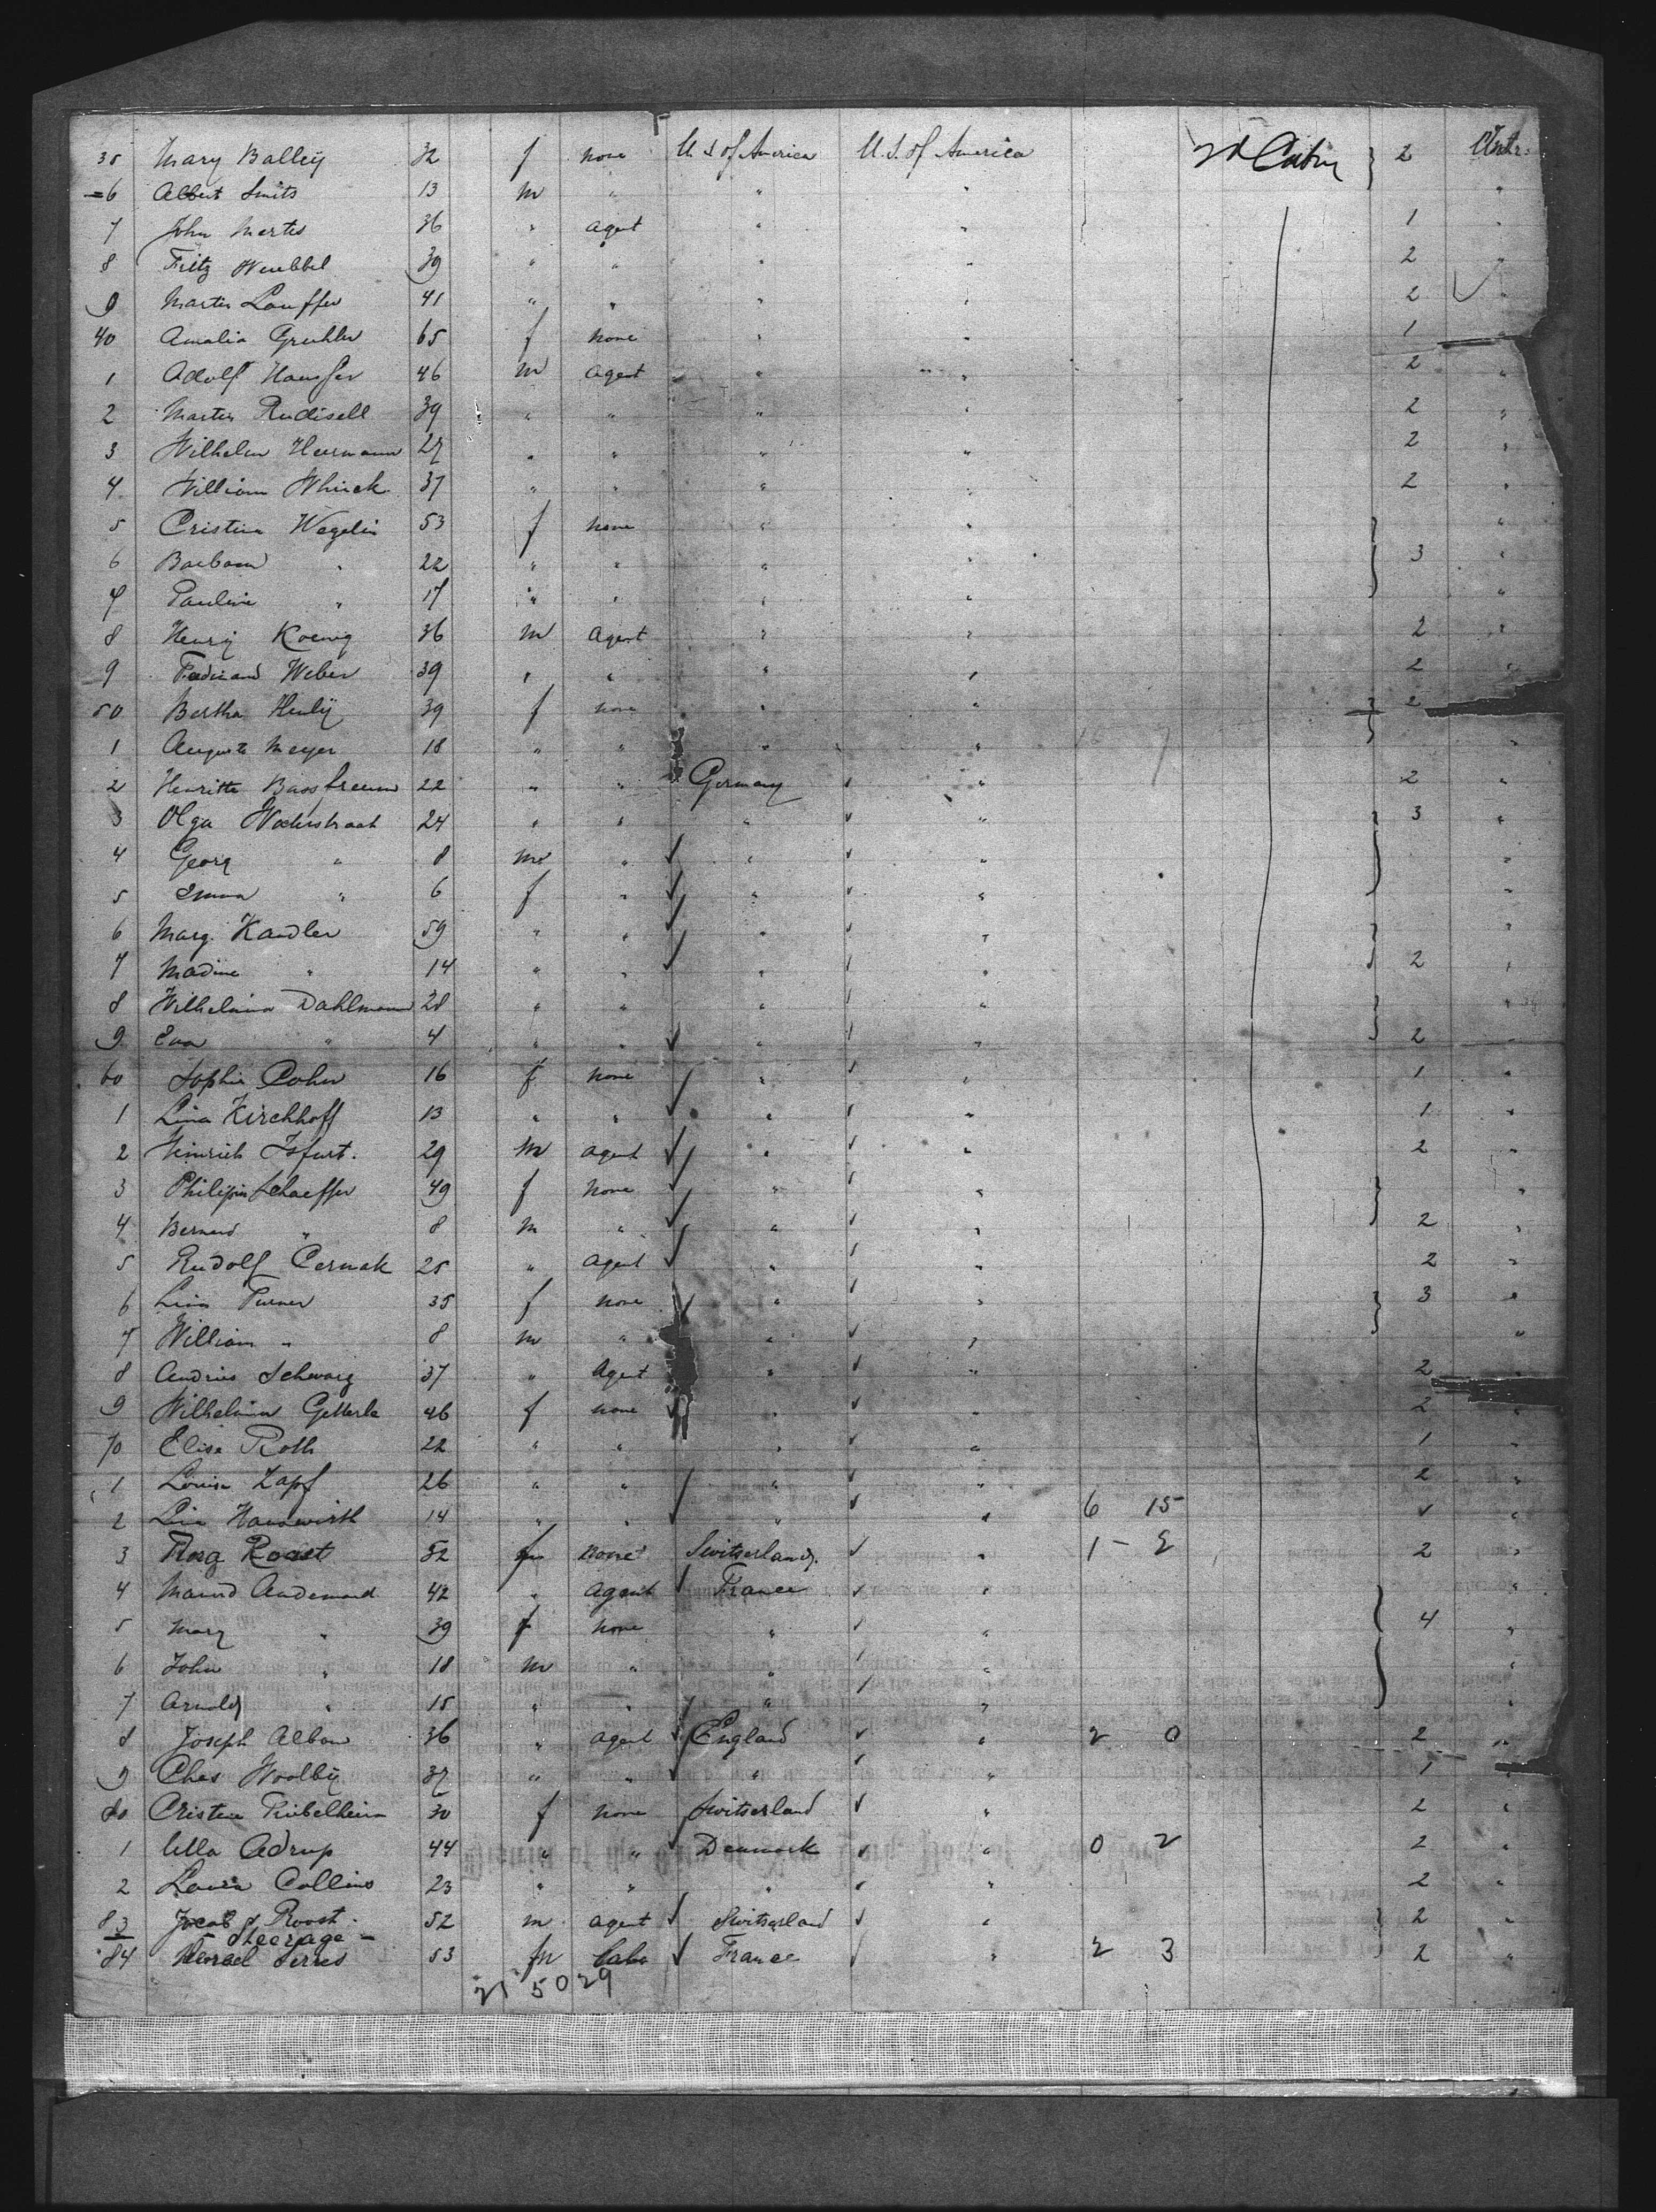 35 Mary Balley 32 f none U.S of America U.S. of America 2d Cabin } 2 Antw:
=6 Albert Smits 13 m " " " "
7 John Mertes 36 " agent " " 1 "
8 Fritz Wenbbel 39 " " " " 2 "
9 Martin Lauffer 41 " " " " 2 "
40 Amalia 65 f none " " 1 "
1 Adolf Hauffer 46 m agent " " 2 "
2 Martin Rudisell 39 " " " " 2 "
3 Wilhelm Heermann 27 " " " " 2 "
4 William Whinck 37 " " " " 2 "
5 Cristina Wegelin 53 f none " " "
6 Barbara " 22 " " " " } 3 "
7 Pauline " 17 " " " " "
8 Henry Koenig 36 m agent " " 2 "
9 Ferdinand Weber 39 " " " " 2 "
50 Bertha Henly 39 f none " " } 2
1 Auguste Meyer 18 " " " " "
2 Henritte 22 " " Germany " 2 "
3 Olga 24 " " " " 3 "
4 Georg " 8 m " " " "
5 Emma " 6 f " " " "
6 Marg. Kandler 59 " " " " "
7 Madine " 14 " " " " } 2 "
8 Wilhelmina Dahlmann 28 " " " " "
9 Eva " 4 " " " " } 2 "
60 Sophie Cohn 16 f none " " 1 "
1 Lina Kirchhoff 13 " " " " 1 "
2 Heinrich Isfurt. 29 m agent " " 2 "
3 Philipin Schaeffer 49 f none " " "
4 Bernard " 8 m " " " } 2 "
5 Rudolf Cermak 25 " agent " " 2 "
6 Lina Turner 35 f none " " } 3 "
7 William " 8 m " " " "
8 Andries Schwarz 37 " agent " " 2 "
9 Wilhelmina Getterle 46 f none " " 2 "
70 Elise Roth 22 " " " " 1 "
1 Louise Zapf 26 " " " " 2 "
2 Lina Hauswirth 14 " " " " 6 15 "
3 Roost 52 none Switserland. " 1 - 2 2 "
4 Audemard 42 " agent France " "
5 Mary " 39 f none " " } 4 "
6 John " 18 m " " " "
7 Arnold " 15 " " " " "
8 Joseph Albon 36 " agent England " 2 0 2 "
9 Chas Woolby 37 " " " " 1 "
80 Cristine 30 f none Switserland " 2 "
1 Ulla Adrup 44 " " Denmark " 0 2 2 "
2 Laura Collins 23 " " " " 2 "
83 Jacob Roost. 52 m agent Switserland " 2 "
- Steerage -
84 53 m France " 2 3 2 "
21 50 29